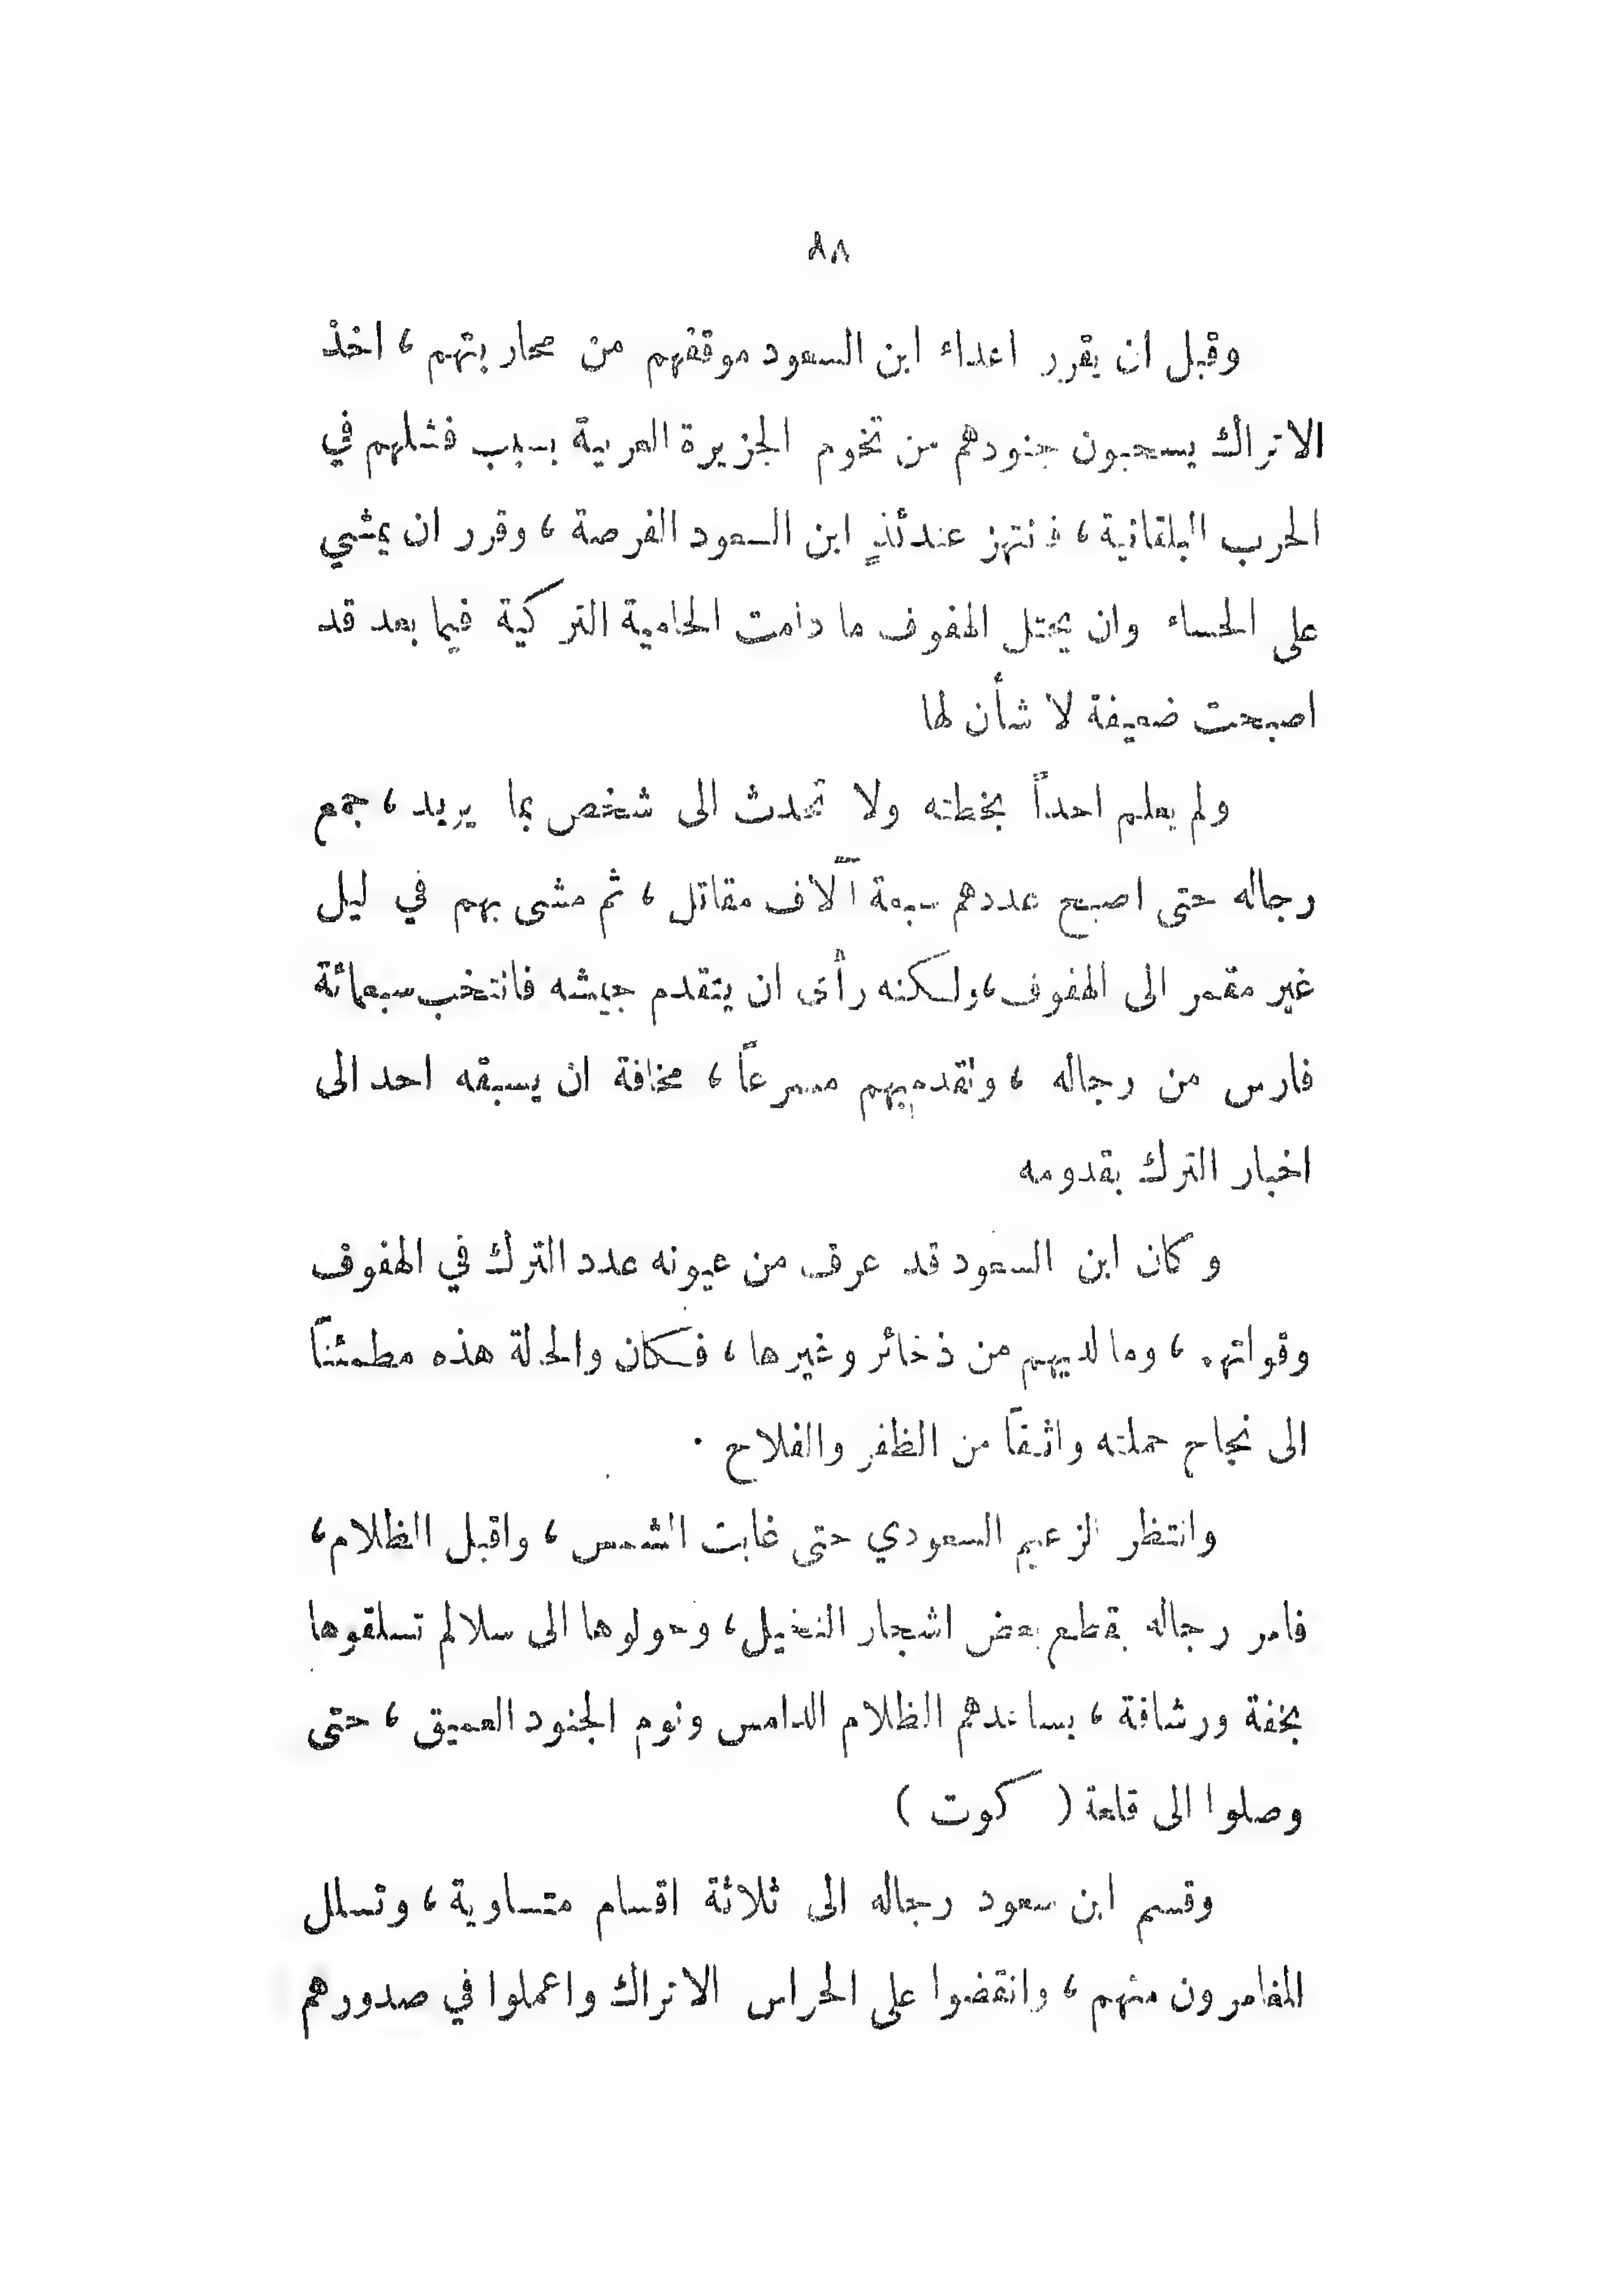 ٨٨
وقبل ان يقرر اعداء ابن السعود موقفهم من محاربتهم ، اخذ
الاتراك يسحبون جنودهم من تخوم الجزيرة العربية بسبب فشلهم في
الحرب البلقانية ، فانتهز عندئذٍ ابن السعود الفرصة ، وقرر ان يمشي
على الحساء وان يحتل الهفوف ما دامت الحامية التركية فيما بعد قد
اصبحت ضعيفة لا شأن لها
ولم يعلم احداً بخطته ولا تحدث الى شخص بما يريد ، جمع
رجاله حتى اصبح عددهم سبعة آلاف مقاتل ، ثم مشى بهم في ليل
غير مقمر الى الهفوف ، ولكنه رأى ان يتقدم جيشه فانتخب سبعمائة
فارس من رجاله ، وتقدم بهم مسرعاً ، مخافة ان يسبقه احد الى
اخبار الترك بقدومه
وكان ابن السعود قد عرف من عيونه عدد الترك في الهفوف
وقواتهم ، وما لديهم من ذخائر وغيرها ، فكان والحالة هذه مطمئناً
الى نجاح حملته واثقاً من الظفر والفلاح .
وانتظر الزعيم السعودي حتى غابت الشمس ، واقبل الظلام ،
فامر رجاله بقطع بعض اشجار النخيل ، وحولوها الى سلالم تسلقوها
بخفة ورشاقة ، يساعدهم الظلام الدامس ونوم الجنود العميق ، حتى
وصلوا الى قلعة ( كوت )
وقسم ابن سعود رجاله الى ثلاثة اقسام متساوية ، وتسلل
المغامرون منهم ، وانقضوا على الحراس الاتراك واعملوا في صدورهم